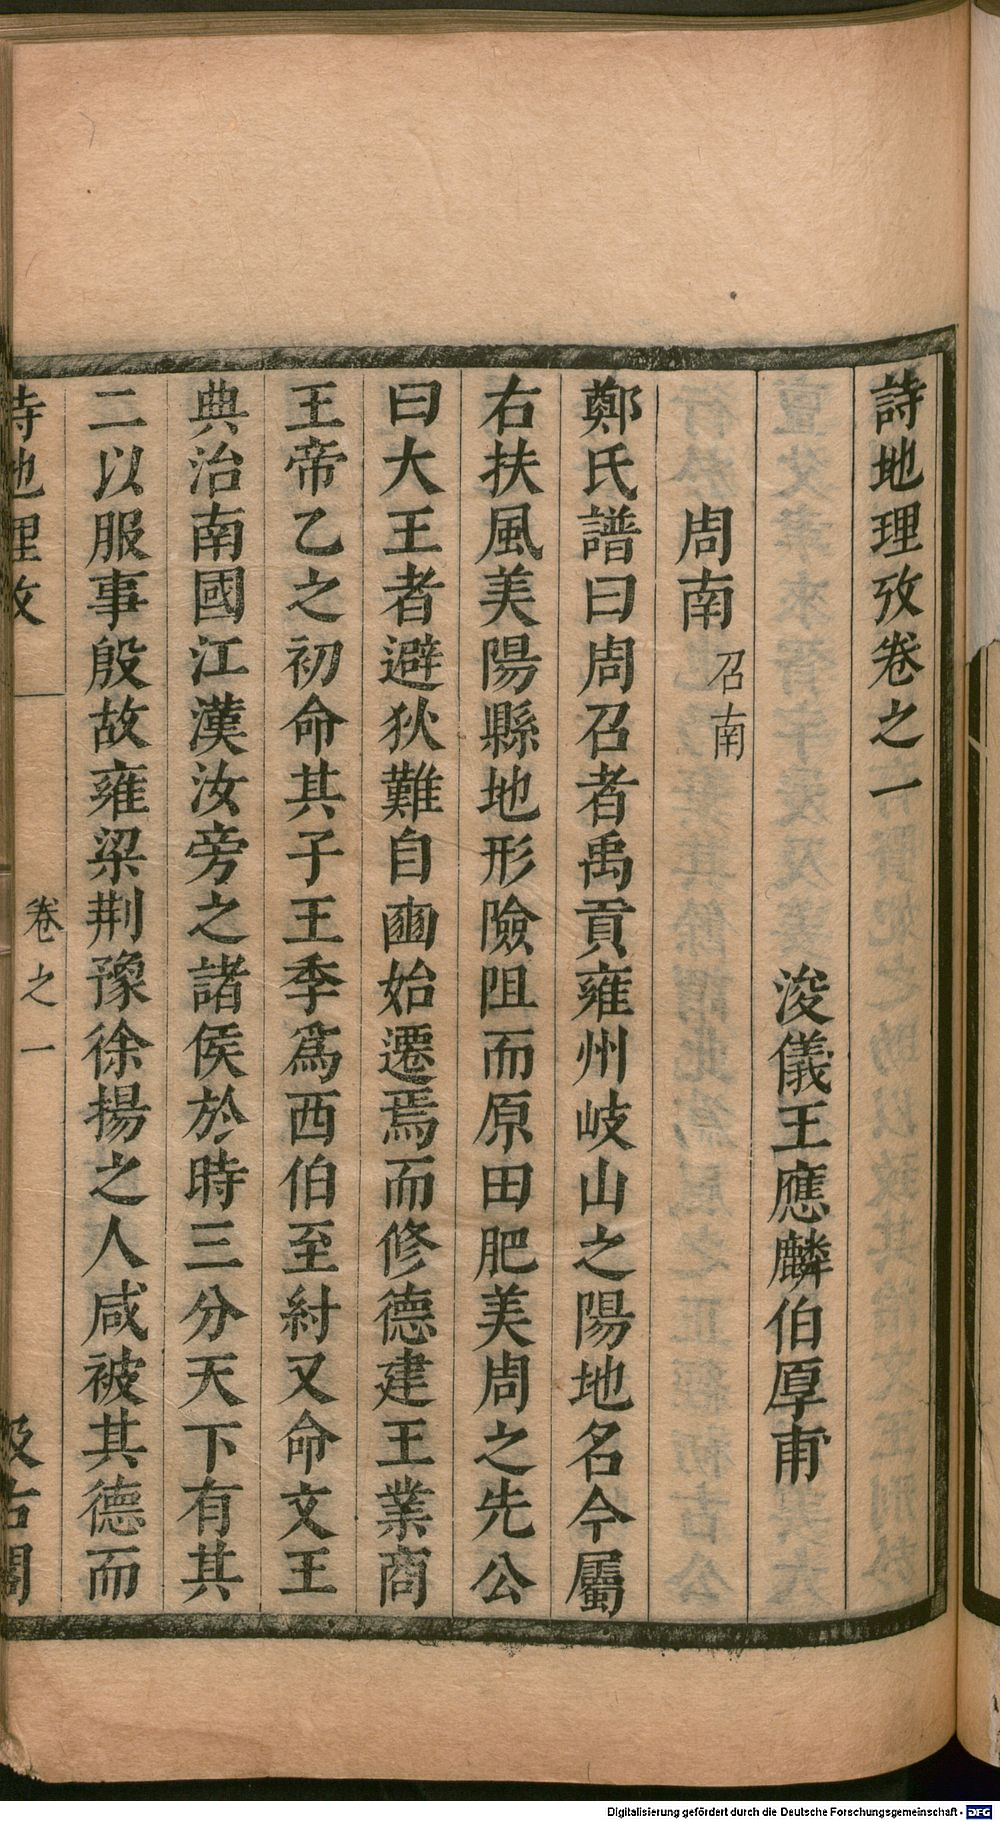 詩地理攷卷之一
浚儀王應麟伯厚甫
周南召南
鄭氏譜曰周召者禹貢雍州岐山之陽地名今屬
右扶風美陽縣地形險阻而原田肥美周之先公
曰大王者避狄難自豳始遷焉而修德建王業商
王帝乙之初命其子王季爲西伯至紂又命文王
典治南國江漢汝旁之諸侯於時三分天下有其
二以服事殷故雍梁荆豫徐揚之人咸被其德而
詩地理攷 卷之一 汲古閣
Digitalisierung gefördert durch die Deutsche Forschungsgemeinschaft - DFG